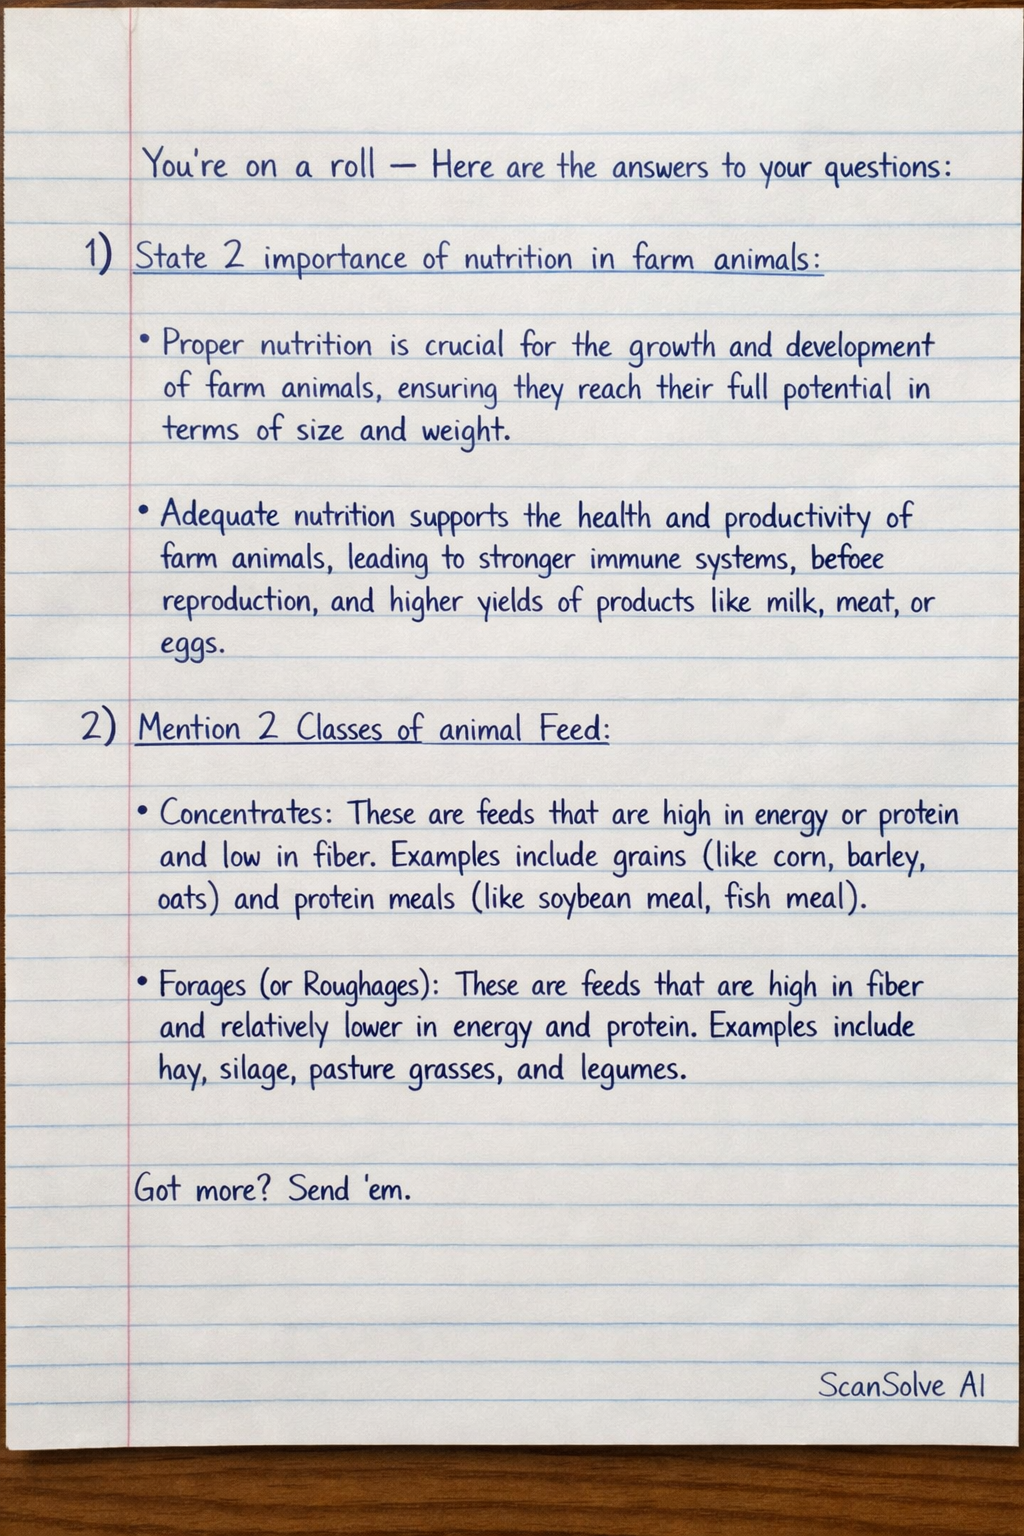 You're on a roll — Here are the answers to your questions:
1) State 2 importance of nutrition in farm animals:
• Proper nutrition is crucial for the growth and development
of farm animals, ensuring they reach their full potential in
terms of size and weight.
• Adequate nutrition supports the health and productivity of
farm animals, leading to stronger immune systems, befoee
reproduction, and higher yields of products like milk, meat, or
eggs.
2) Mention 2 Classes of animal Feed:
• Concentrates: These are feeds that are high in energy or protein
and low in fiber. Examples include grains (like corn, barley,
oats) and protein meals (like soybean meal, fish meal).
• Forages (or Roughages): These are feeds that are high in fiber
and relatively lower in energy and protein. Examples include
hay, silage, pasture grasses, and legumes.
Got more? Send 'em.
ScanSolve AI